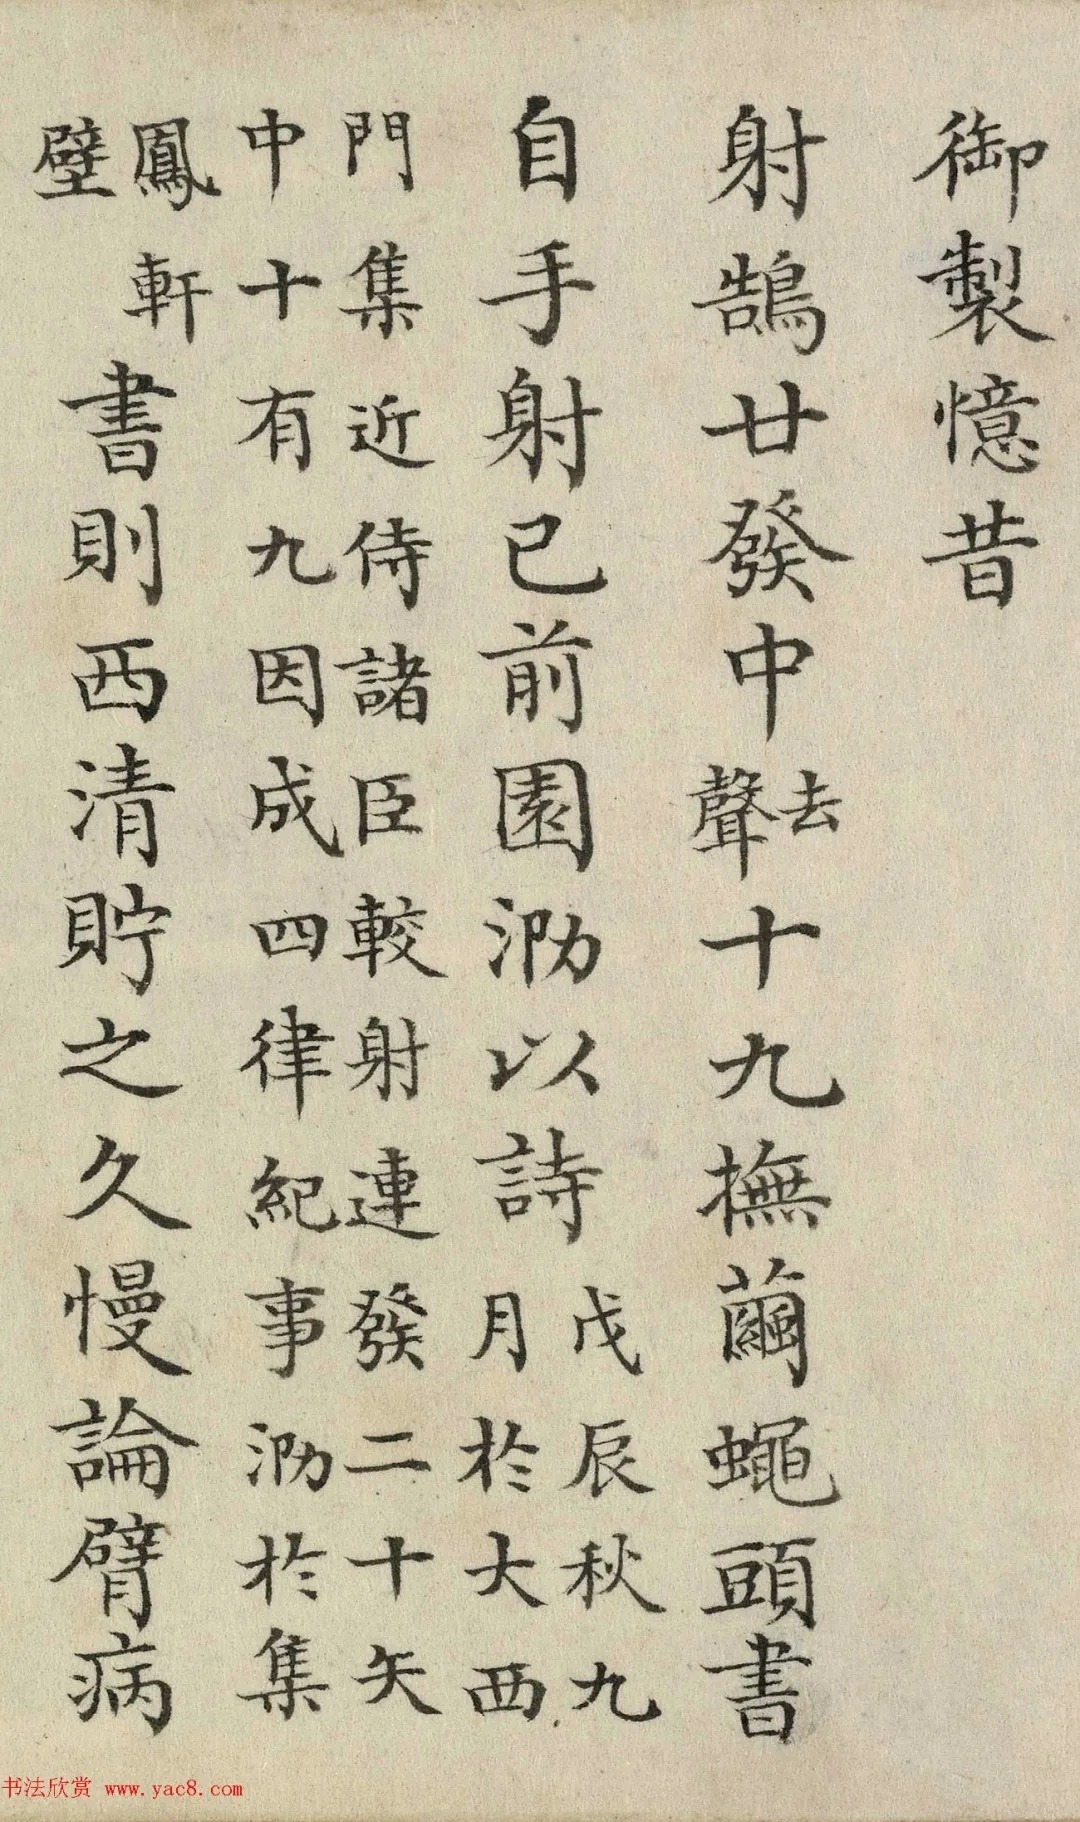 御製憶昔
射鵠廿發中去聲十九撫繭蠅頭書
自手射已前園泐以詩戊辰秋九月於大西
門集近侍諸臣較射連發二十矢
中十有九因成四律紀事泐於集
鳳軒壁書則西清貯之久慢論臂病
书法欣赏 www.yac8.com